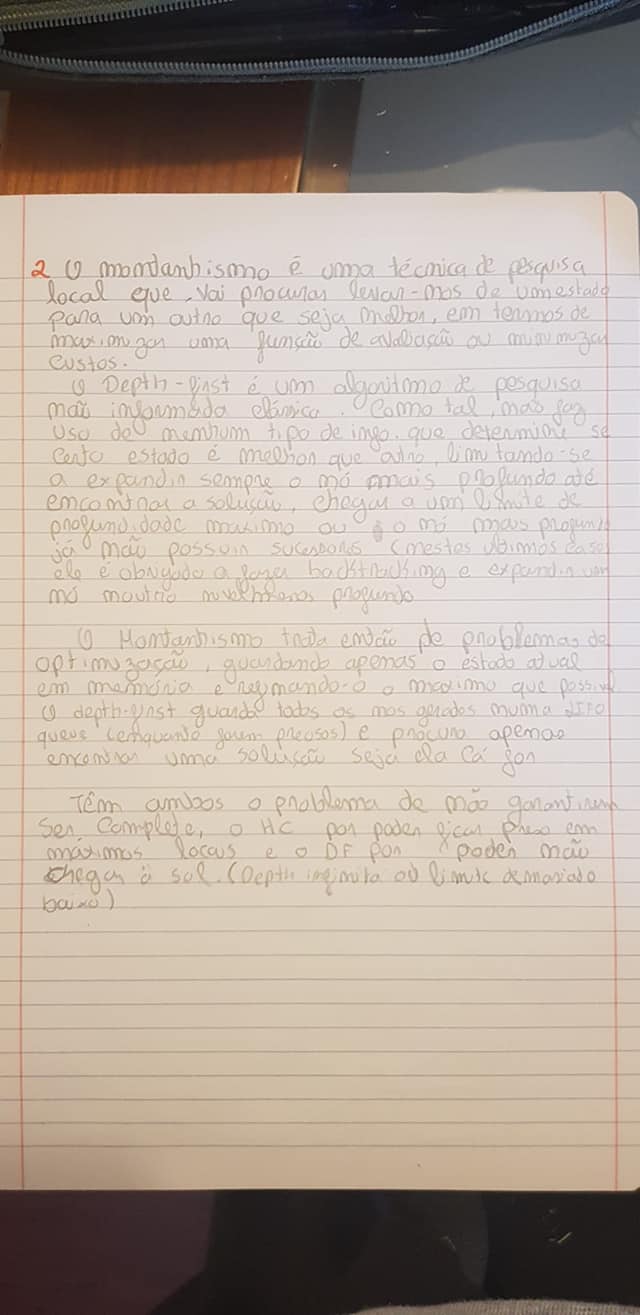 2 O montanhismo é uma técnica de pesquisa
local que vai procurar levar-nos de um estado
para um outro que seja melhor, em termos de
maximizar uma função de avaliação ou minimizar
custos.
O Depth-first é um algoritmo de pesquisa
não informada clássico. Como tal, não faz
uso de nenhum tipo de info. que determine se
certo estado é melhor que outro, limitando-se
a expandir sempre o nó mais profundo até
encontrar a solução, chegar a um limite de
profundidade maximo ou o nó mais profund
já não possuir sucessores (nestes ultimos casos
ele é obrigado a fazer backtracking e expandir um
nó noutro nível menos profundo
O Montanhismo trata então de problemas de
optimização, guardando apenas o estado atual
em memória e o maximo que possivel
O depth-first guarda todos os nos gerados numa LIFO
queue (enquanto forem precisos) e procura apenas
encontrar uma solução seja ela cá for
Têm ambos o problema de não garantirem
ser complete, o HC por poder ficar preso em
máximos locais e o DF por poder não
chegar à sol. (Depth infinita ou limite demasiado
baixo)